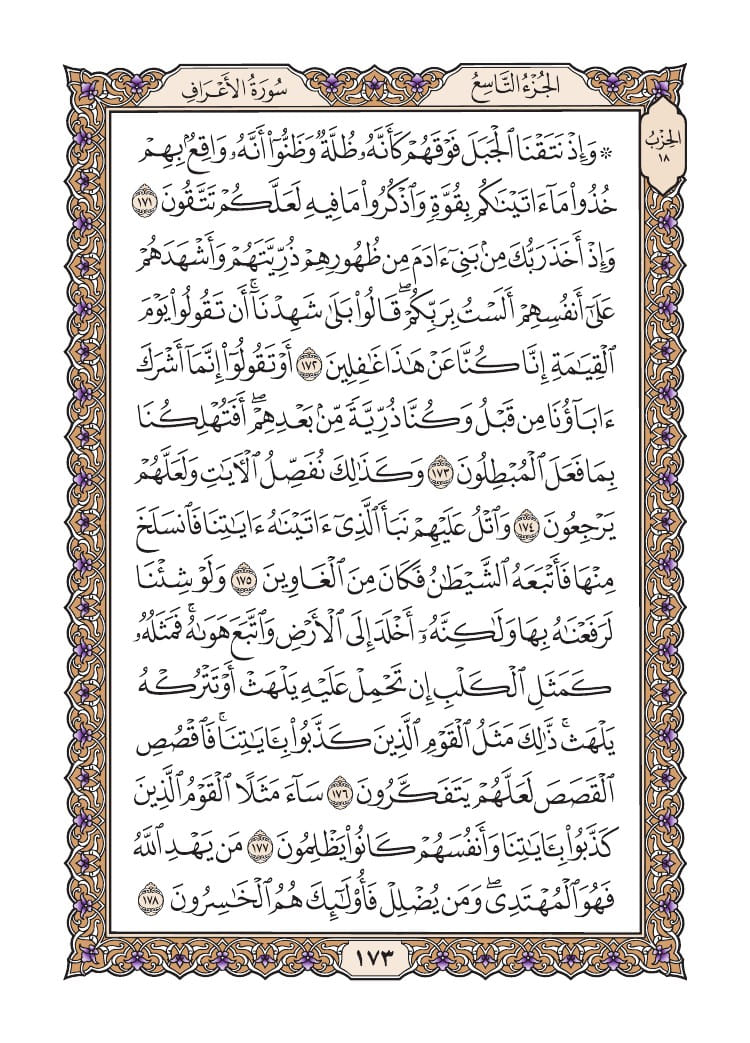 الجُزْءُ التَّاسِعُ
سُورَةُ الأَعْرَافِ
الحِزْبُ
١٨
۞ وَإِذۡ نَتَقۡنَا ٱلۡجَبَلَ فَوۡقَهُمۡ كَأَنَّهُۥ ظُلَّةٞ وَظَنُّوٓاْ أَنَّهُۥ وَاقِعُۢ بِهِمۡ
خُذُواْ مَآ ءَاتَيۡنَٰكُم بِقُوَّةٖ وَٱذۡكُرُواْ مَا فِيهِ لَعَلَّكُمۡ تَتَّقُونَ ١٧١
وَإِذۡ أَخَذَ رَبُّكَ مِنۢ بَنِيٓ ءَادَمَ مِن ظُهُورِهِمۡ ذُرِّيَّتَهُمۡ وَأَشۡهَدَهُمۡ
عَلَىٰٓ أَنفُسِهِمۡ أَلَسۡتُ بِرَبِّكُمۡۖ قَالُواْ بَلَىٰ شَهِدۡنَآۚ أَن تَقُولُواْ يَوۡمَ
ٱلۡقِيَٰمَةِ إِنَّا كُنَّا عَنۡ هَٰذَا غَٰفِلِينَ ١٧٢ أَوۡ تَقُولُوٓاْ إِنَّمَآ أَشۡرَكَ
ءَابَآؤُنَا مِن قَبۡلُ وَكُنَّا ذُرِّيَّةٗ مِّنۢ بَعۡدِهِمۡۖ أَفَتُهۡلِكُنَا
بِمَا فَعَلَ ٱلۡمُبۡطِلُونَ ١٧٣ وَكَذَٰلِكَ نُفَصِّلُ ٱلۡأٓيَٰتِ وَلَعَلَّهُمۡ
يَرۡجِعُونَ ١٧٤ وَٱتۡلُ عَلَيۡهِمۡ نَبَأَ ٱلَّذِيٓ ءَاتَيۡنَٰهُ ءَايَٰتِنَا فَٱنسَلَخَ
مِنۡهَا فَأَتۡبَعَهُ ٱلشَّيۡطَٰنُ فَكَانَ مِنَ ٱلۡغَاوِينَ ١٧٥ وَلَوۡ شِئۡنَا
لَرَفَعۡنَٰهُ بِهَا وَلَٰكِنَّهُۥٓ أَخۡلَدَ إِلَى ٱلۡأَرۡضِ وَٱتَّبَعَ هَوَىٰهُۚ فَمَثَلُهُۥ
كَمَثَلِ ٱلۡكَلۡبِ إِن تَحۡمِلۡ عَلَيۡهِ يَلۡهَثۡ أَوۡ تَتۡرُكۡهُ
يَلۡهَثۚ ذَّٰلِكَ مَثَلُ ٱلۡقَوۡمِ ٱلَّذِينَ كَذَّبُواْ بِـَٔايَٰتِنَاۚ فَٱقۡصُصِ
ٱلۡقَصَصَ لَعَلَّهُمۡ يَتَفَكَّرُونَ ١٧٦ سَآءَ مَثَلًا ٱلۡقَوۡمُ ٱلَّذِينَ
كَذَّبُواْ بِـَٔايَٰتِنَا وَأَنفُسَهُمۡ كَانُواْ يَظۡلِمُونَ ١٧٧ مَن يَهۡدِ ٱللَّهُ
فَهُوَ ٱلۡمُهۡتَدِيۖ وَمَن يُضۡلِلۡ فَأُوْلَٰٓئِكَ هُمُ ٱلۡخَٰسِرُونَ ١٧٨
١٧٣